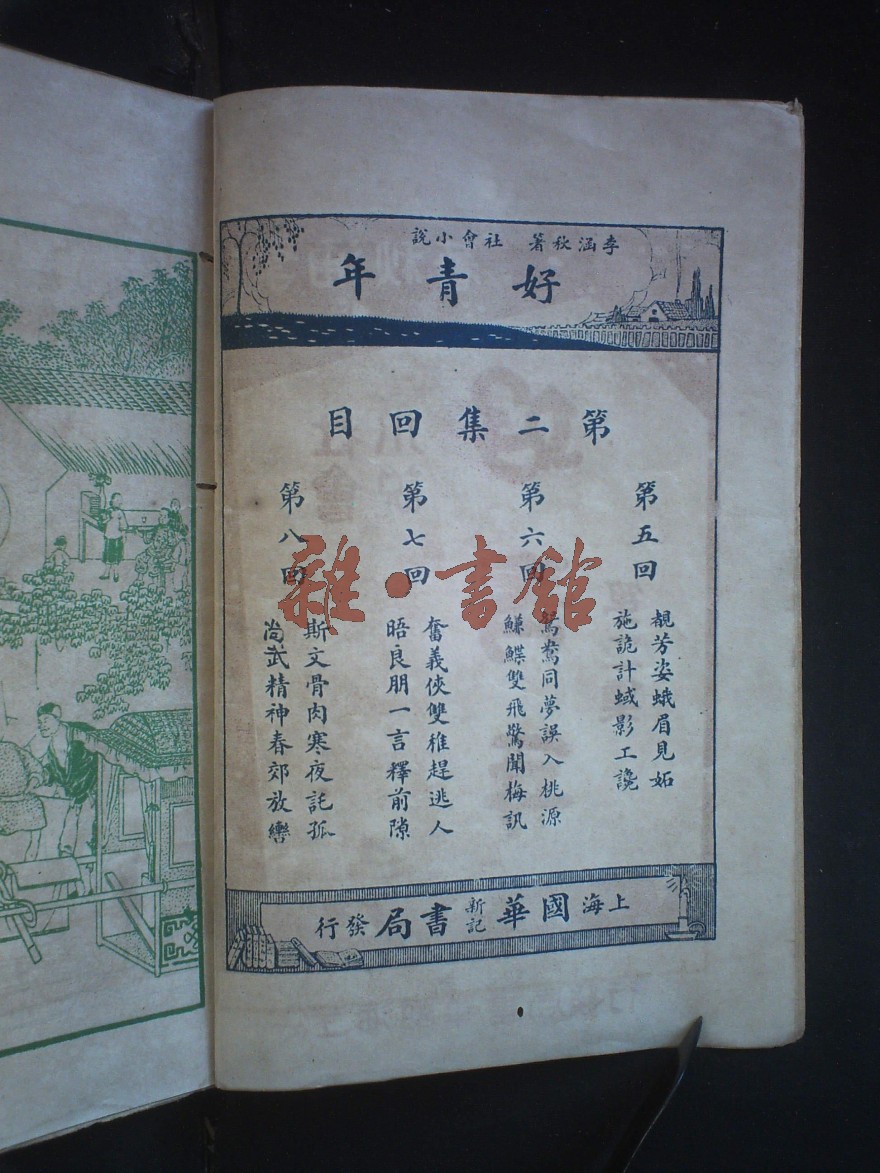 李涵秋著 社會小說
好青年
第二集回目
第五回
覩芳姿蛾眉見妬
施詭計蜮影工讒
第六回
鴛鴦同夢誤入桃源
鰜鰈雙飛驚聞梅訊
第七回
奮義俠雙雅趕逃人
晤良朋一言釋前隙
第八回
斯文骨肉寒夜託孤
尚武精神春郊放轡
上海國華新記書局發行
雜·書館